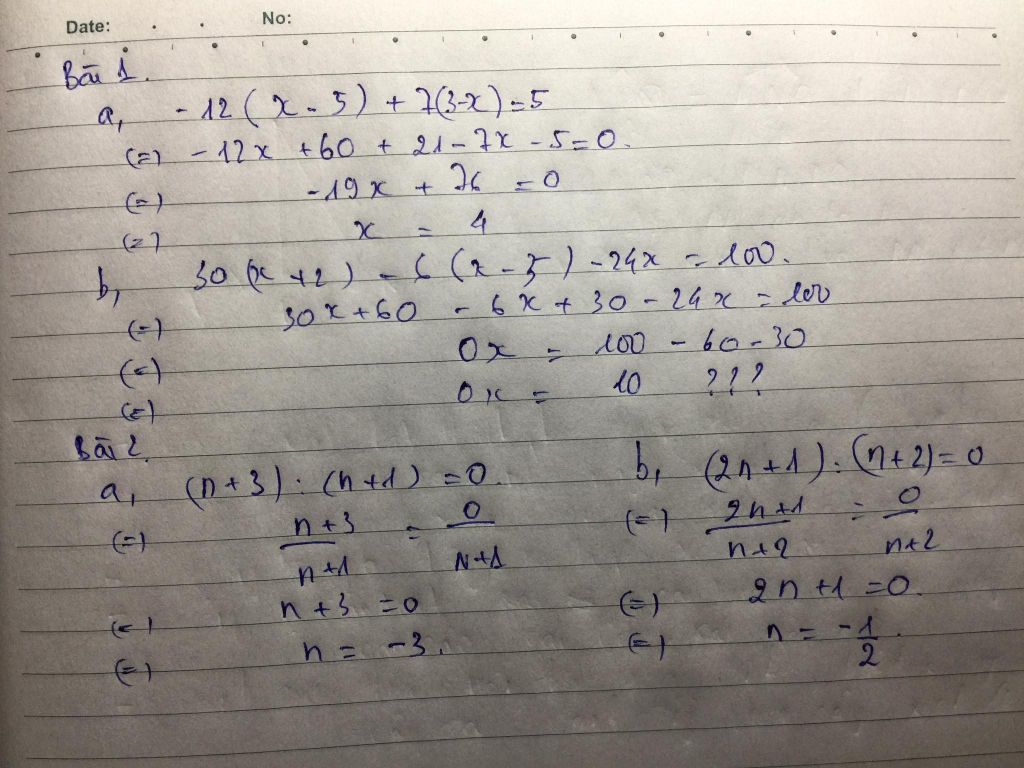 Date: . . No:
Bài 1.
a, -12 ( x - 5 ) + 7(3-x) = 5
(=) -12x + 60 + 21 - 7x - 5 = 0.
(=) -19x + 76 = 0
(=) x = 4
b, 30 (x + 2) - 6 (x - 5) - 24x = 100.
(=) 30x + 60 - 6x + 30 - 24x = 100
(=) 0x = 100 - 60 - 30
(=) 0x = 10 ???
Bài 2.
a, (n + 3) : (n + 1) = 0.
(=) n + 3 / n + 1 = 0 / N + 1
(=) n + 3 = 0
(=) n = -3.
b, (2n + 1) : (n + 2) = 0
(=) 2n + 1 / n + 2 = 0 / n + 2
(=) 2n + 1 = 0.
(=) n = -1/2.